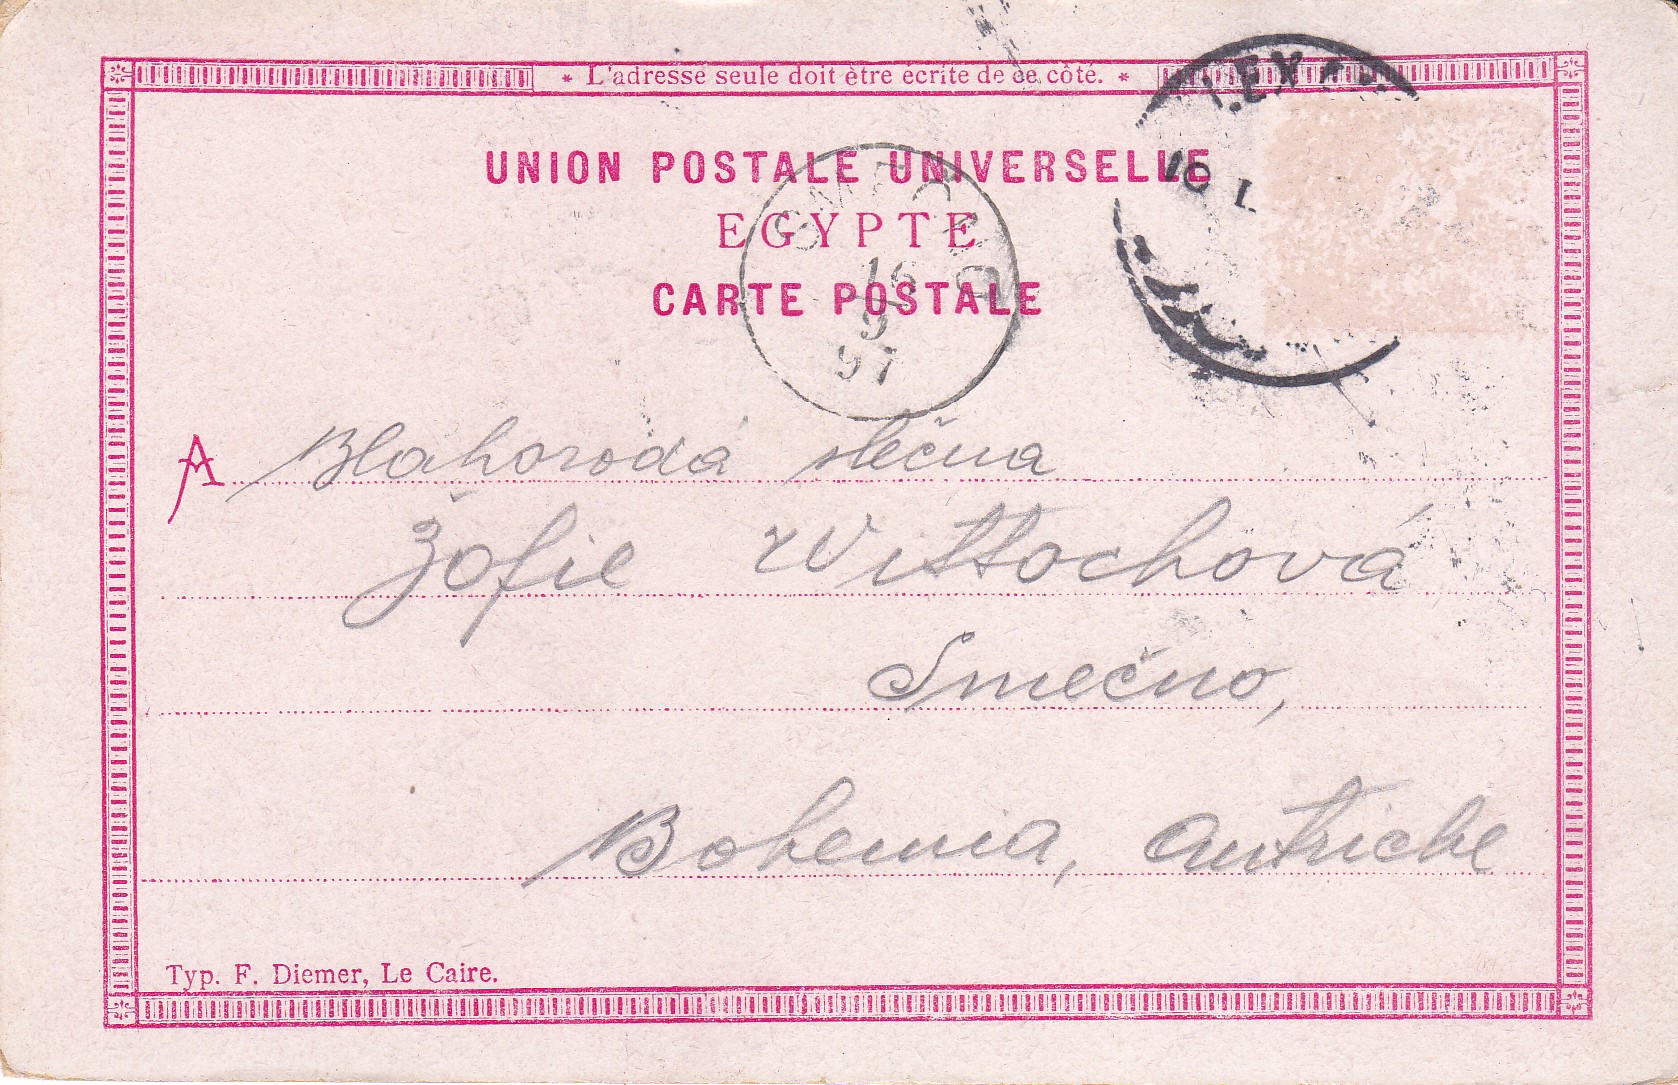 * L'adresse seule doit être ecrite de ce côté. *
UNION POSTALE UNIVERSELLE
EGYPTE
CARTE POSTALE
16
9
97
A Blahorodá slečna
Žofie Wittochová
Smečno,
Bohemia, Autriche
Typ. F. Diemer, Le Caire.